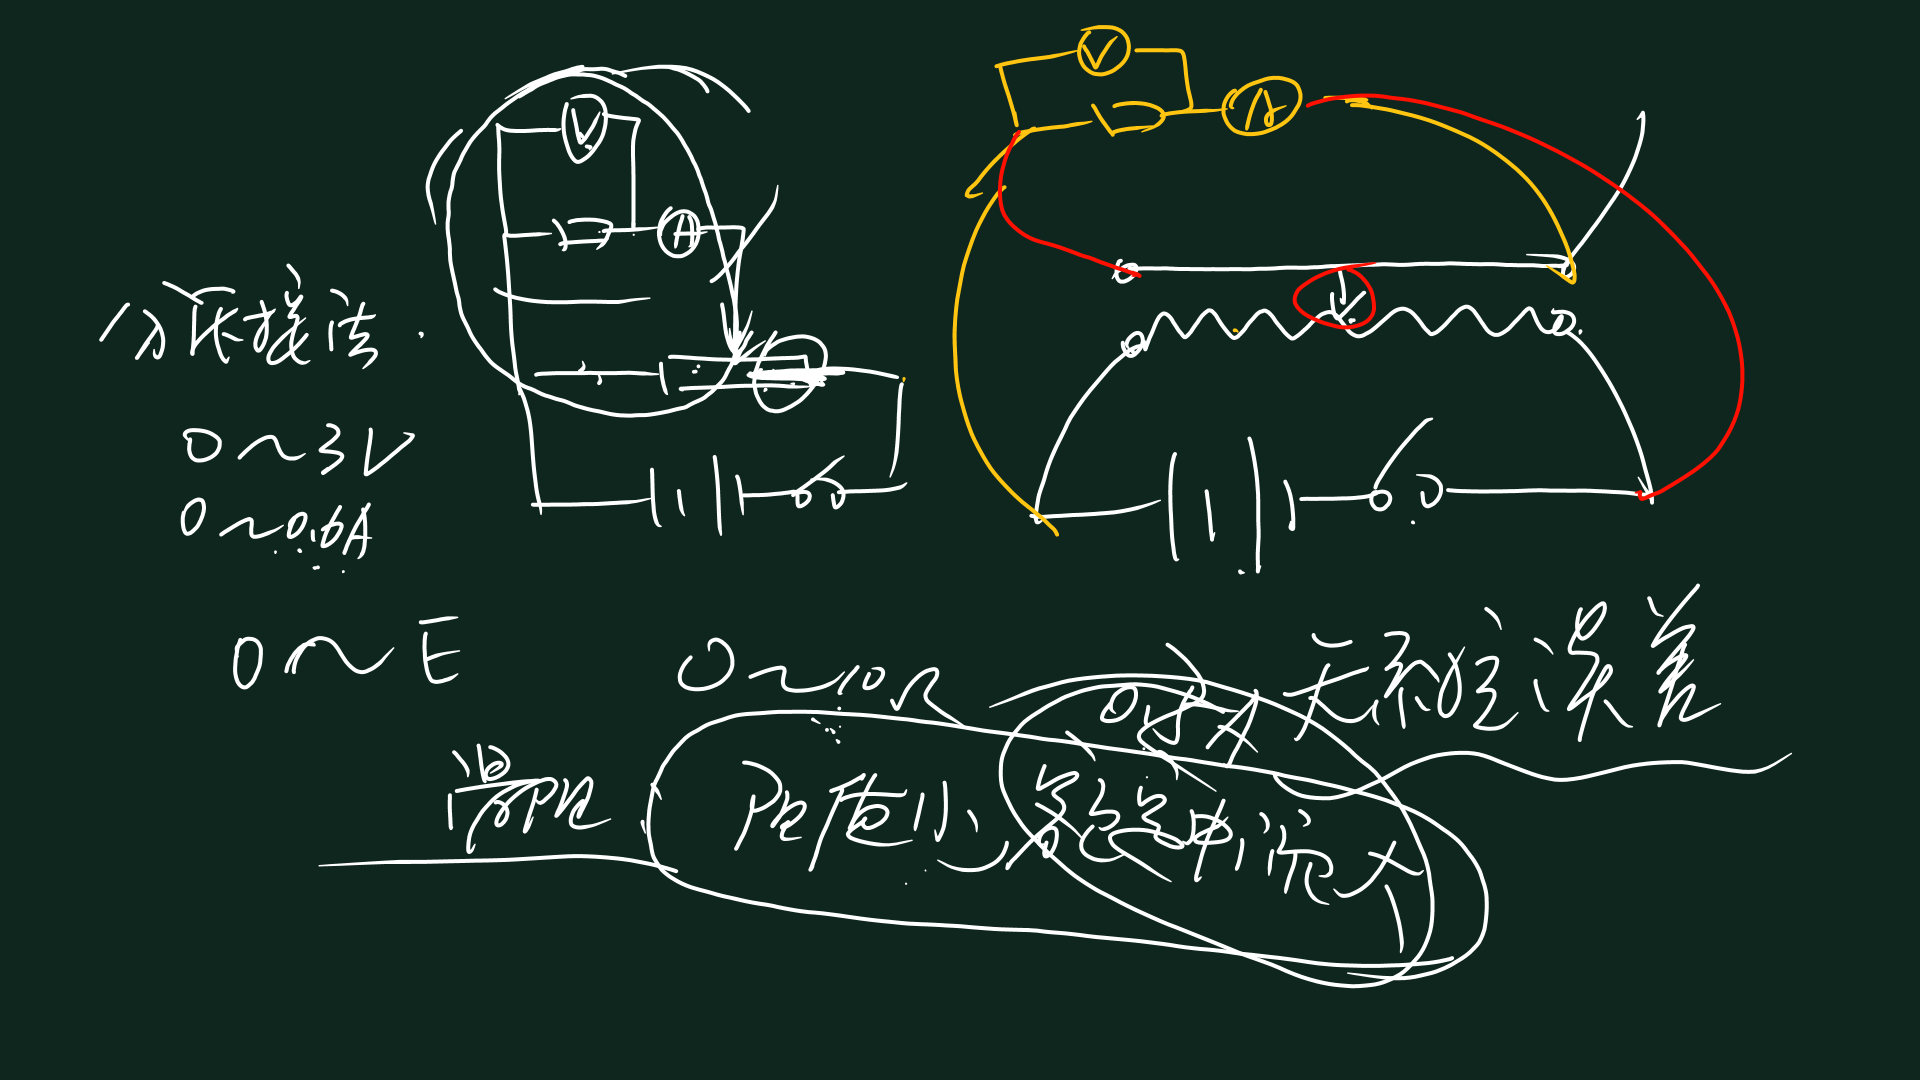 V
A
V
A
分压接法
0~3V
0~0.6A
0~E
0~10Ω
0.5A
无系统误差
滑阻
阻值小
总电流大